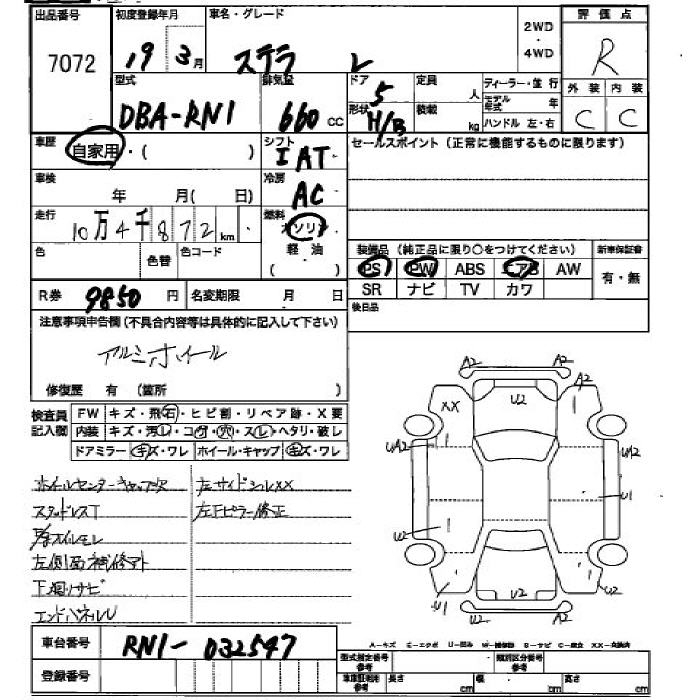 出品番号 初度登録年月 車名・グレード 2WD・4WD 評価点
7072 19 3月 ステラ L R
型式 排気量 ドア 定員 ディーラー・並行 外装 内装
DBA-RN1 660cc 5 人 モデル年式 年 C C
形状 積載 ハンドル 左・右
H/B kg
車歴 シフト セールスポイント(正常に機能するものに限ります)
自家用・( ) I AT
車検 冷房
年 月( 日) AC
走行 燃料
10万4千872km ガソリン
色 色替 色コード 軽油 装備品(純正品に限り○をつけてください) 新車保証書
( ) PS PW ABS エアB AW 有・無
R券 9850円 名変期限 月 日 SR ナビ TV カワ
注意事項申告欄(不具合内容等は具体的に記入して下さい) 後日品
アルミホイール
修復歴 有 (箇所 )
検査員記入欄 FW キズ・飛石・ヒビ割・リペア跡・X要
内装 キズ・汚レ・コゲ・穴・スレ・ヘタリ・破レ
ドアミラー キズ・ワレ ホイール・キャップ キズ・ワレ
ホイールセンターキャップ欠 左サイドシルXX
スタッドレスT 左Fピラー修正
オイルモレ
左側面補修アト
下廻りサビ
エンドパネルU
A2 A2
A2 U2 A2
XX
UA2 UA2
U1
U2
U1 U2 U2
U2 A2
車台番号 RN1-032547
登録番号
A-キズ E-エクボ U-凹み W-補修跡 S-サビ C-腐食 XX-交換済
型式指定番号 参考 類別区分番号 参考
車庫証明用 参考 長さ cm 幅 cm 高さ cm